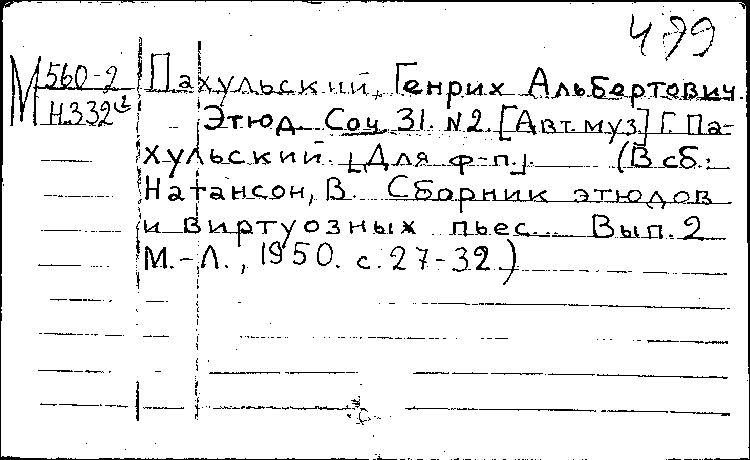 499
М 560-2 Пахульский, Генрих Альбертович.
Н.332 Этюд. Соч 31. №2. [Авт. муз.] Г. Па-
хульский. [Для ф-п.]. (В сб.:
Натансон, В. Сборник этюдов
и виртуозных пьес... Вып. 2
М.-Л., 1950. с. 27-32.)